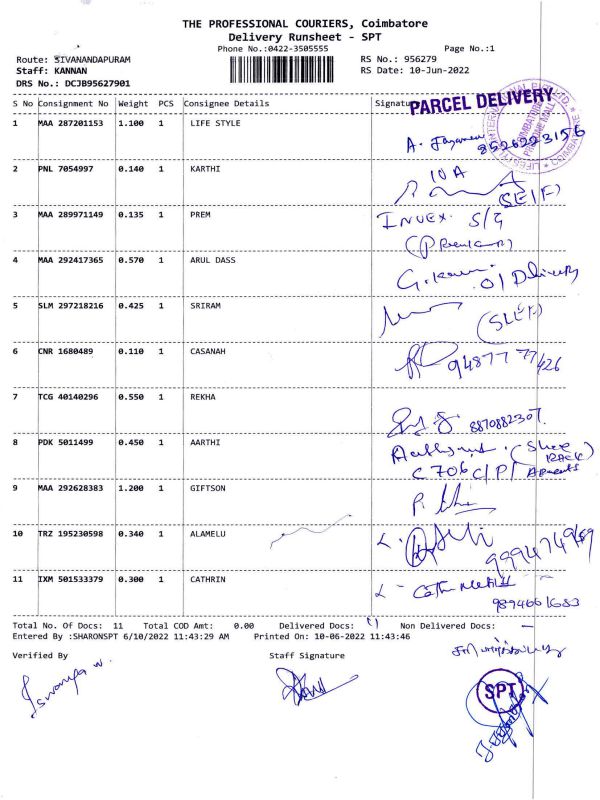 THE PROFESSIONAL COURIERS, Coimbatore
Delivery Runsheet - SPT
Phone No.:0422-3505555
Page No.:1
Route: SIVANANDAPURAM
RS No.: 956279
Staff: KANNAN
RS Date: 10-Jun-2022
DRS No.: DCJB95627901
S No Consignment No Weight PCS Consignee Details Signature
PARCEL DELIVERY
1 MAA 287201153 1.100 1 LIFE STYLE
8526223156
2 PNL 7054997 0.140 1 KARTHI
10A
(SELF)
3 MAA 289971149 0.135 1 PREM
INVEX. S/G
4 MAA 292417365 0.570 1 ARUL DASS
O/Delivery
5 SLM 297218216 0.425 1 SRIRAM
(SLEF)
6 CNR 1680489 0.110 1 CASANAH
94877 77426
7 TCG 40140296 0.550 1 REKHA
8870882307
8 PDK 5011499 0.450 1 AARTHI
(Shoe RACK)
C706 C/P/
9 MAA 292628383 1.200 1 GIFTSON
10 TRZ 195230598 0.340 1 ALAMELU
11 IXM 501533379 0.300 1 CATHRIN
Total No. Of Docs: 11 Total COD Amt: 0.00 Delivered Docs: 11 Non Delivered Docs: —
Entered By :SHARONSPT 6/10/2022 11:43:29 AM Printed On: 10-06-2022 11:43:46
Verified By Staff Signature
SPT